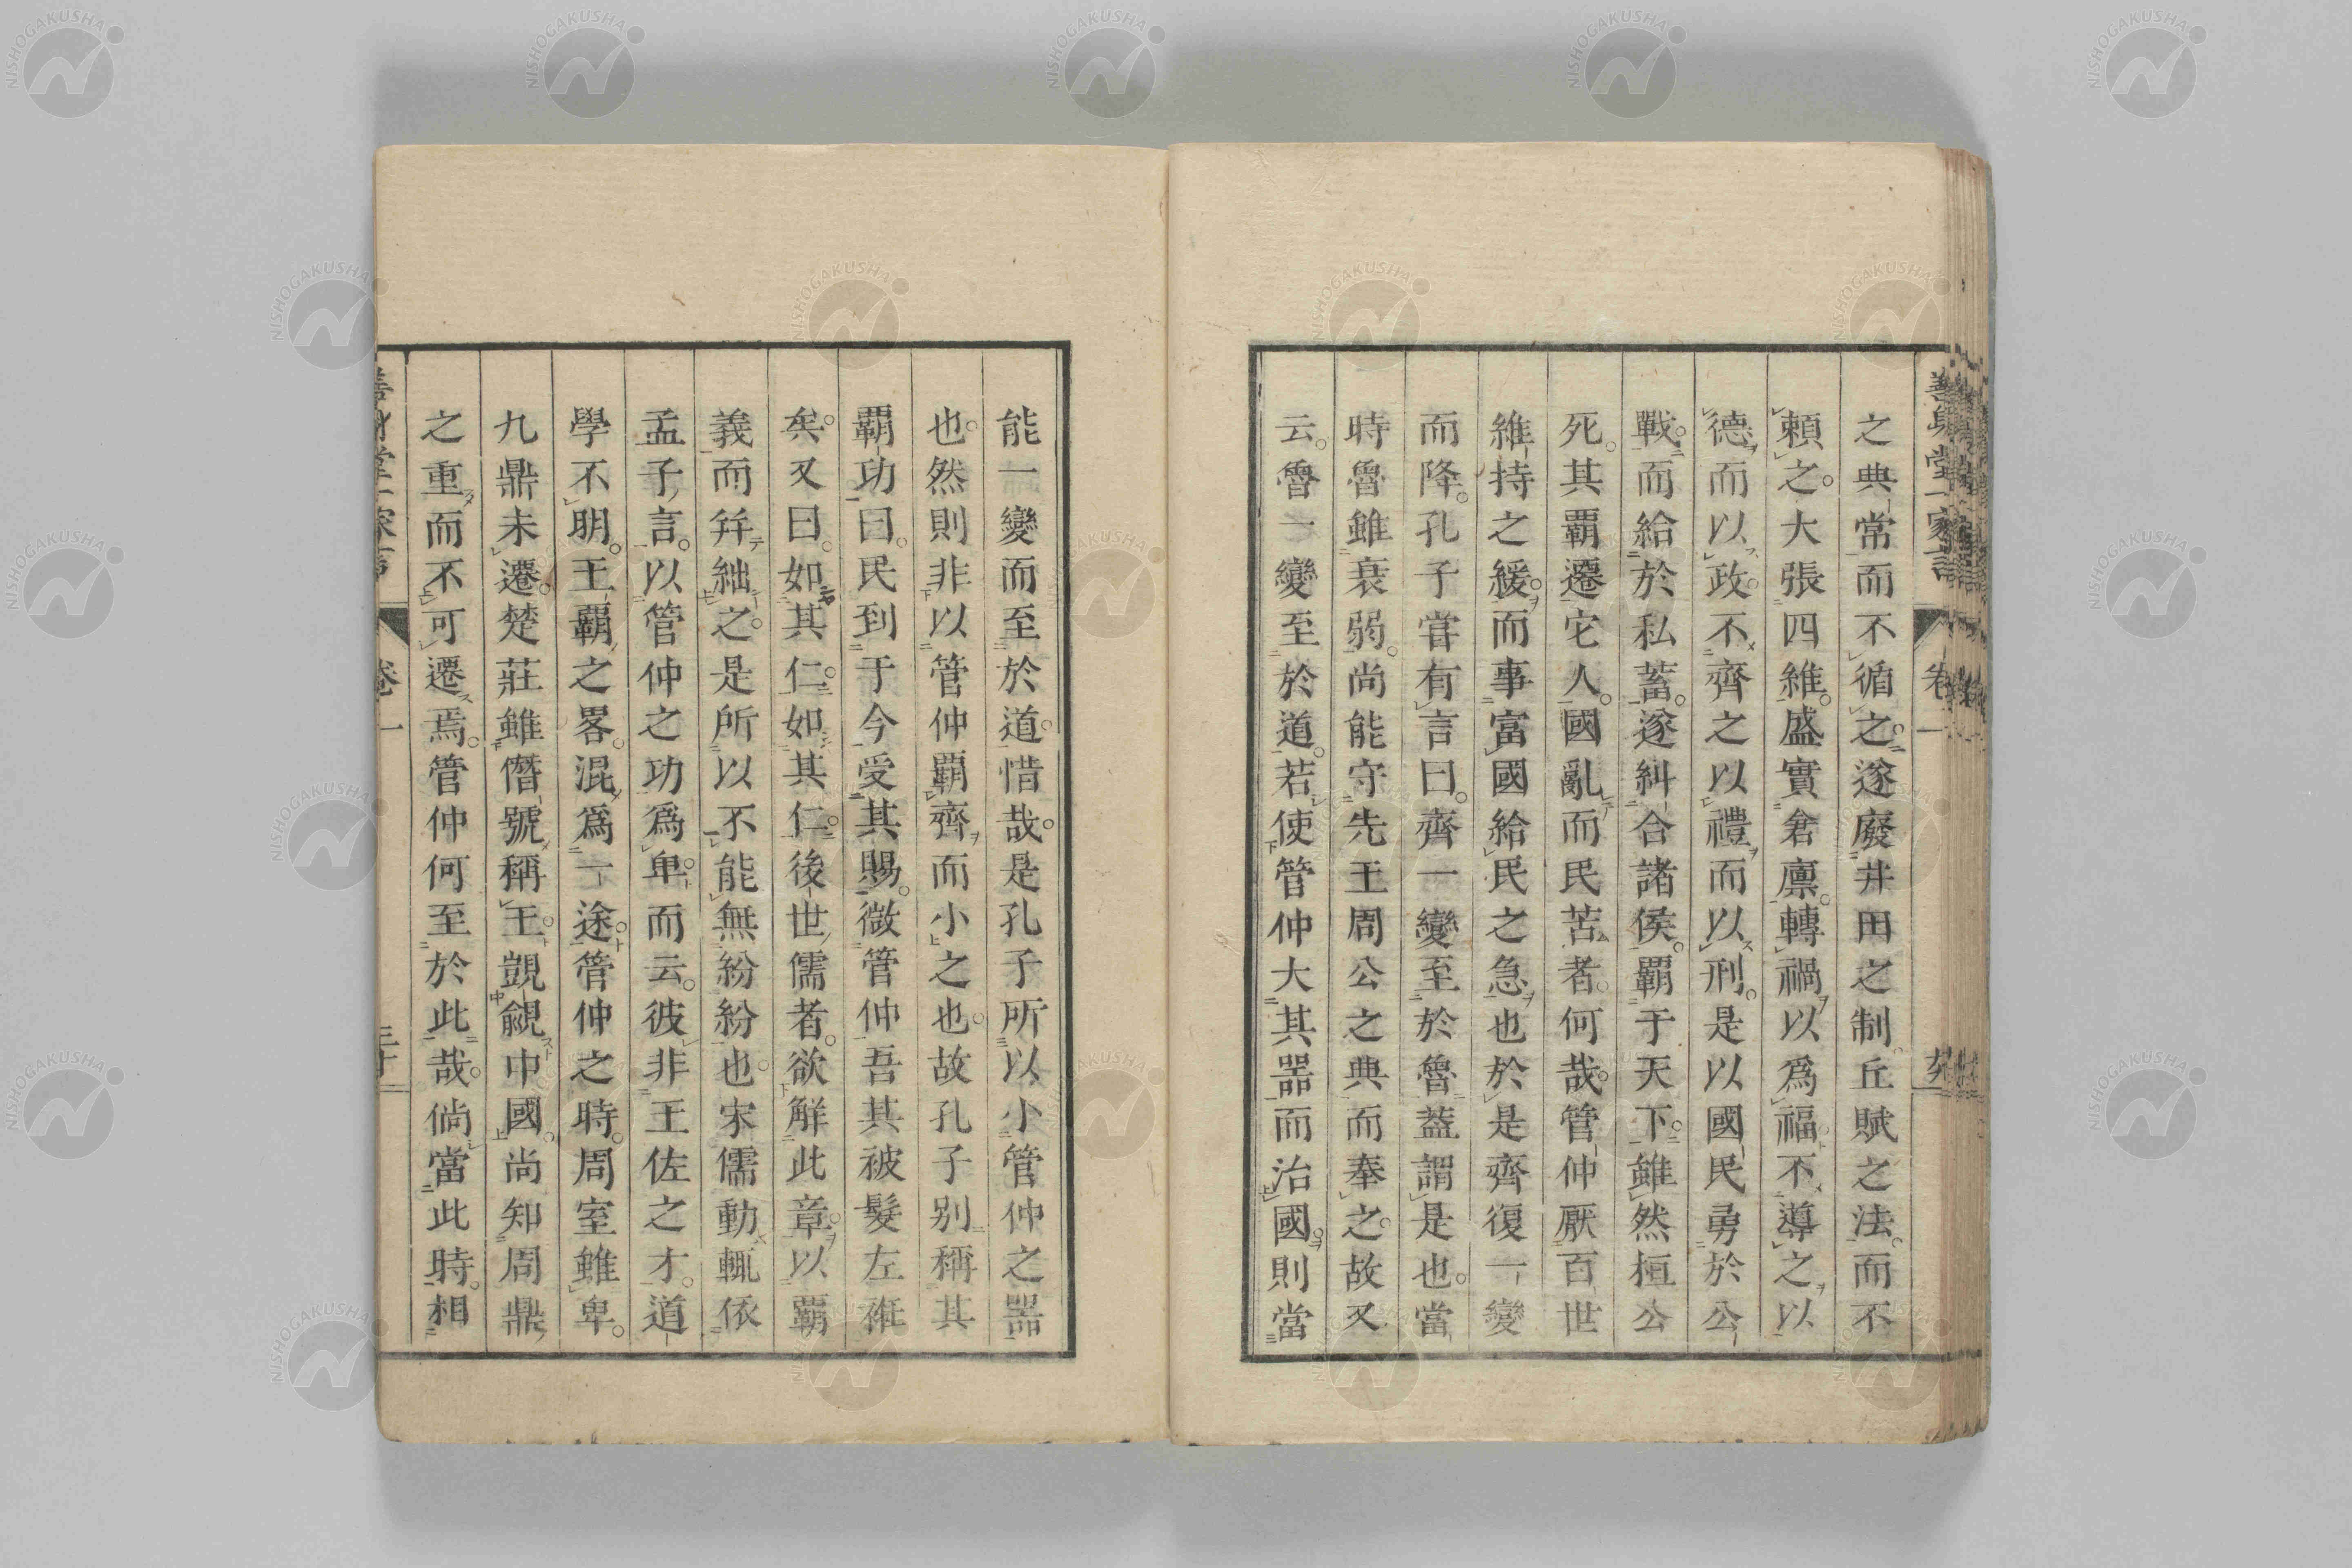 之典常而不循之遂廢井田之制丘賦之法而不
頼之大張四維盛實倉廩轉禍以爲福不導之以
德而以政不齊之以禮而以刑是以國民勇於公
戰而給於私蓄遂糾合諸侯覇于天下雖然桓公
死其覇遷它人國亂而民苦者何哉管仲厭百世
維持之緩而事富國給民之急也於是齊復一變
而降孔子嘗有言曰齊一變至於魯蓋謂是也當
時魯雖衰弱尚能守先王周公之典而奉之故又
云魯一變至於道若使管仲大其器而治國則當
能一變而至於道惜哉是孔子所以小管仲之器
也然則非以管仲覇齊而小之也故孔子別稱其
覇功曰民到于今受其賜微管仲吾其被髮左袵
矣又曰如其仁如其仁後世儒者欲解此章以覇
義而幷絀之是所以不能無紛紛也宋儒動輒依
孟子言以管仲之功爲卑而云彼非王佐之才道
學不明王覇之畧混爲一途管仲之時周室雖卑
九鼎未遷楚莊雖僭號稱王覬覦中國尚知周鼎
之重而不可遷焉管仲何至於此哉倘當此時相
卷一
NISHOGAKUSHA